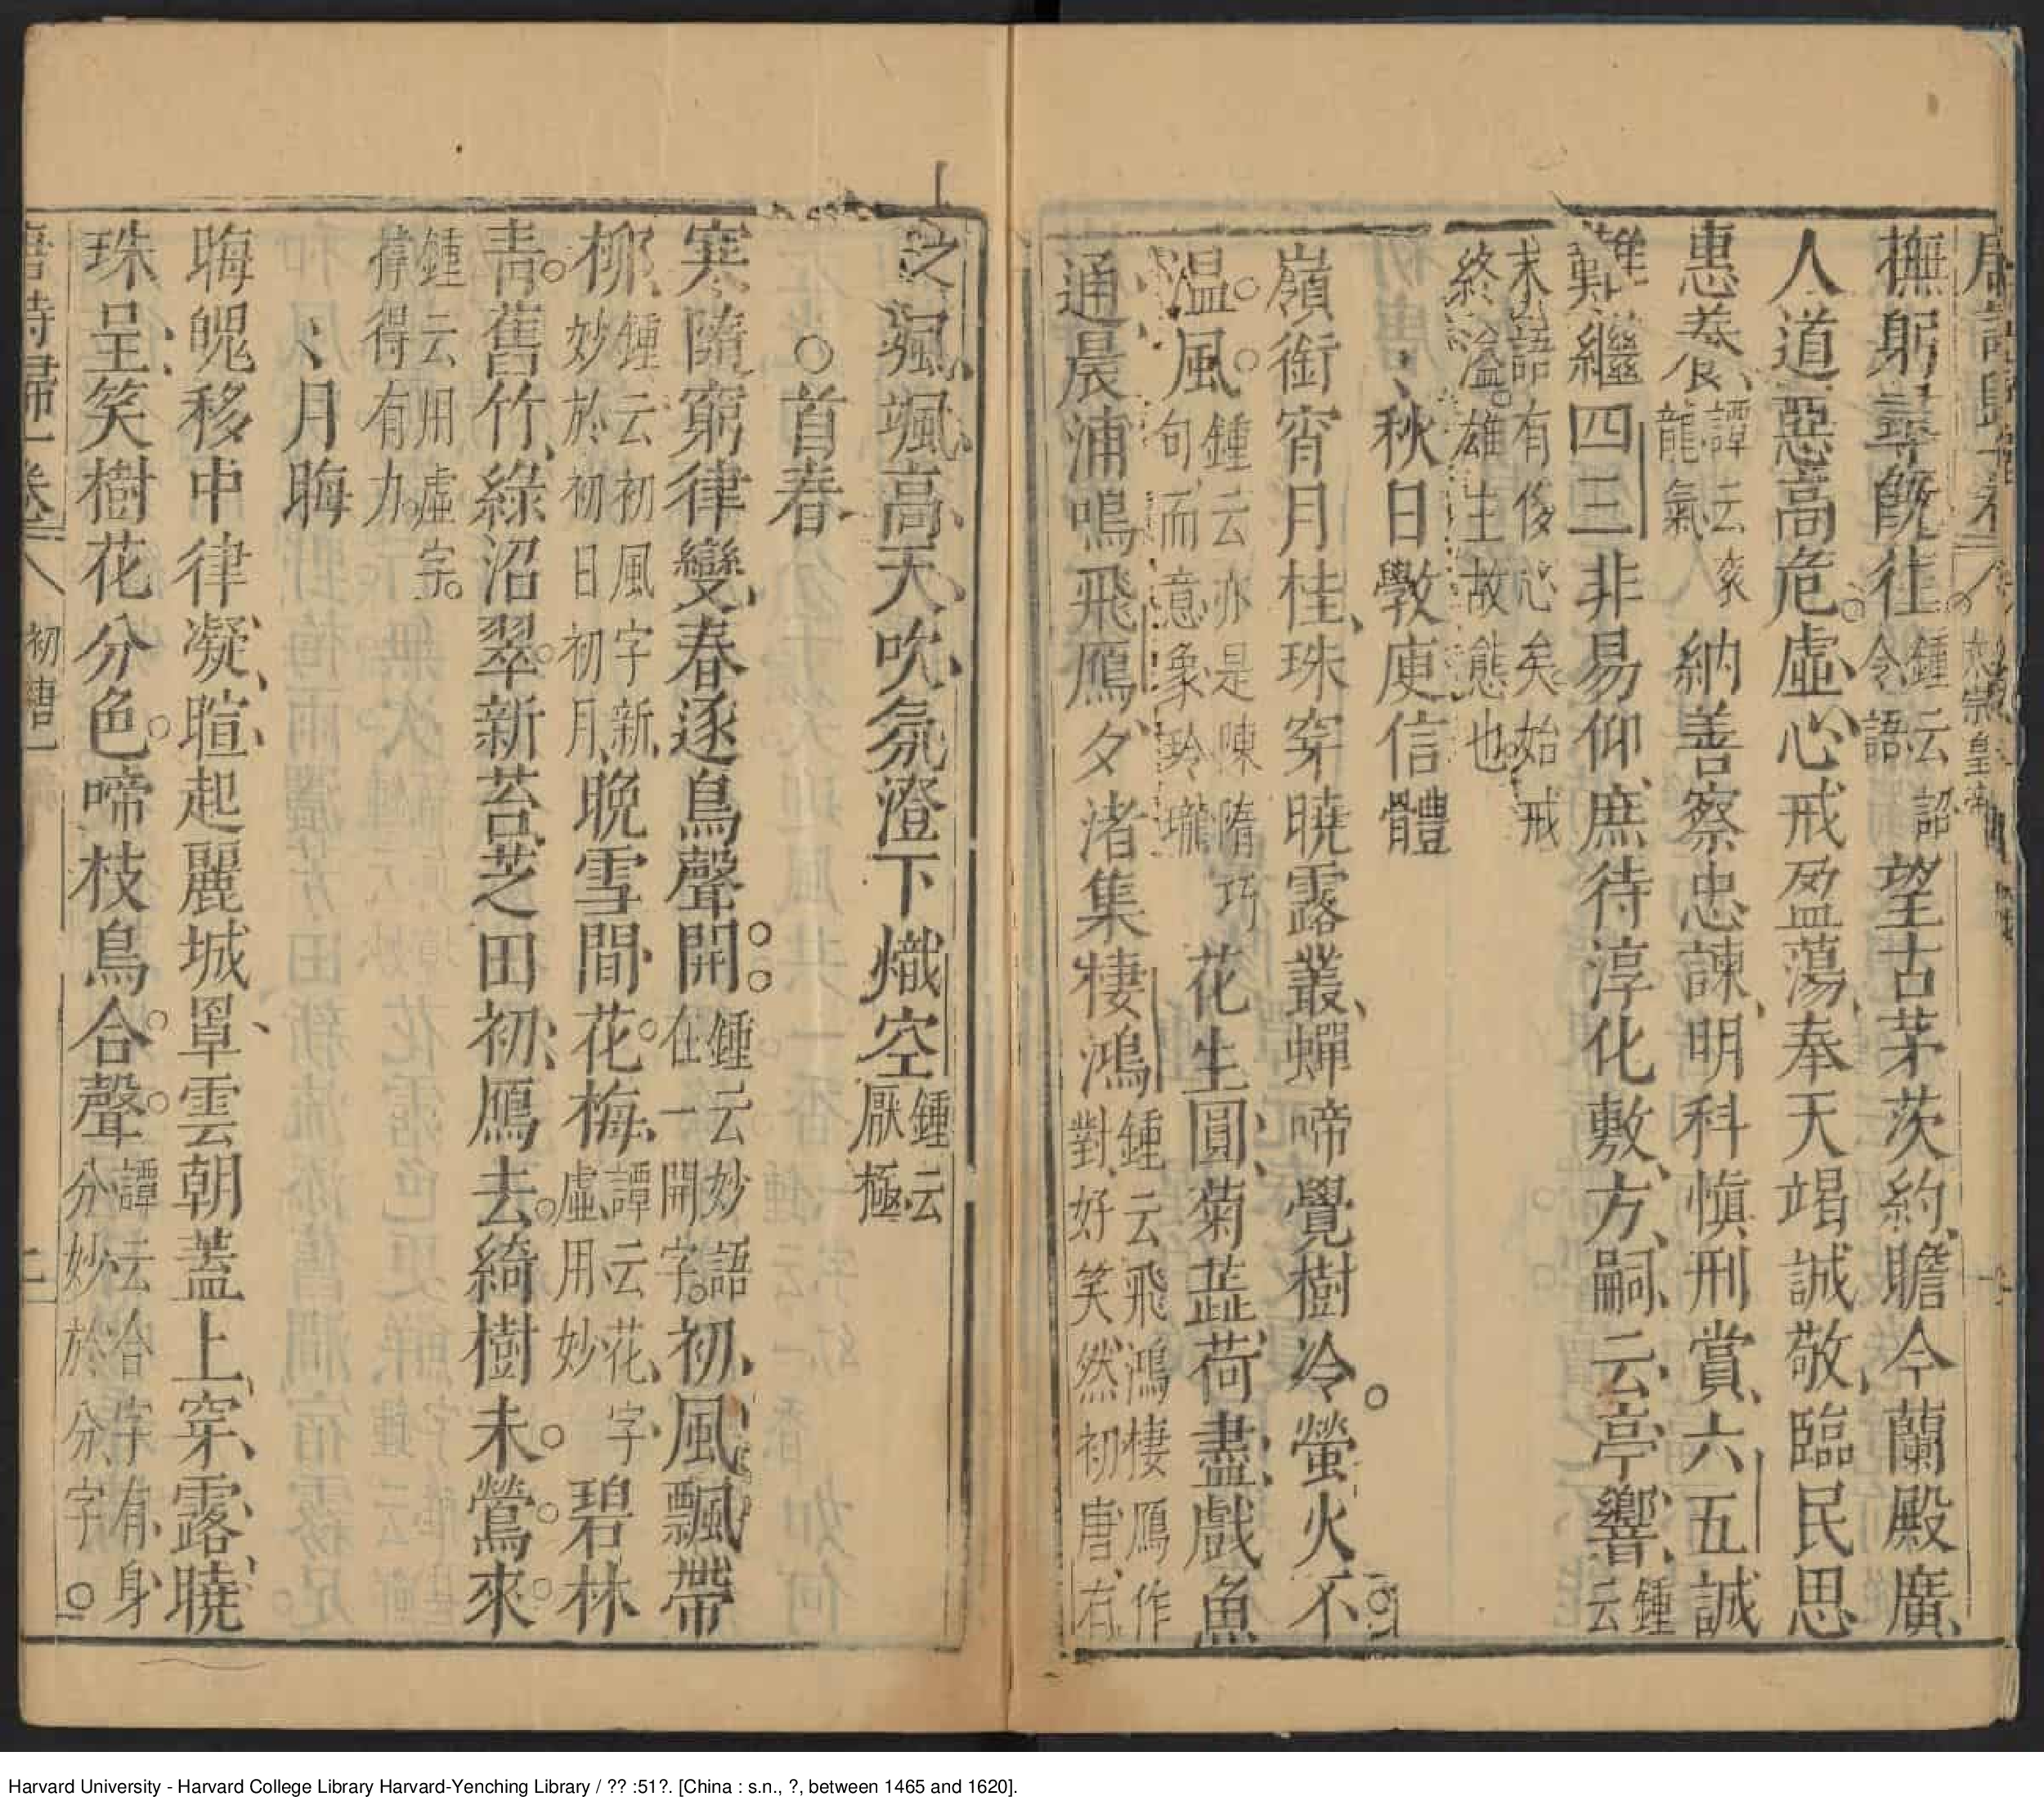 撫躬尋旣往鍾云詔令語望古茅茨約瞻今蘭殿廣
人道惡高危虛心戒盈蕩奉天竭誠敬臨民思
惠養譚云衮龍氣納善察忠諫明科慎刑賞六五誠
難繼四三非易仰庶待淳化敷方嗣云亭響鍾云
末語有俊心矣始戒終溢雄主故態也
秋日斆庾信體
嶺銜宵月桂珠穿曉露叢蟬啼覺樹冷螢火不
温風鍾云亦是陳隋巧句而意象玲瓏花生圓菊蕋荷盡戲魚
通晨浦鳴飛鴈夕渚集棲鴻鍾云飛鴻棲鴈作對好笑然初唐有
之颯颯高天吹氛澄下熾空鍾云厭極
首春
寒隨窮律變春逐鳥聲開鍾云妙語在一開字初風飄帶
柳鍾云初風字新妙於初日初月晩雪間花梅譚云花字虛用妙碧林
青舊竹綠沼翠新苔芝田初鴈去綺樹未鶯來
鍾云用虛字撑得有力
月晦
晦魄移中律凝暄起麗城罩雲朝蓋上穿露曉
珠呈笑樹花分色啼枝鳥合聲譚云合字有身分妙於分字
唐詩歸一卷 八 初唐一 二
Harvard University - Harvard College Library Harvard-Yenching Library / ?? :51?. [China : s.n., ?, between 1465 and 1620].